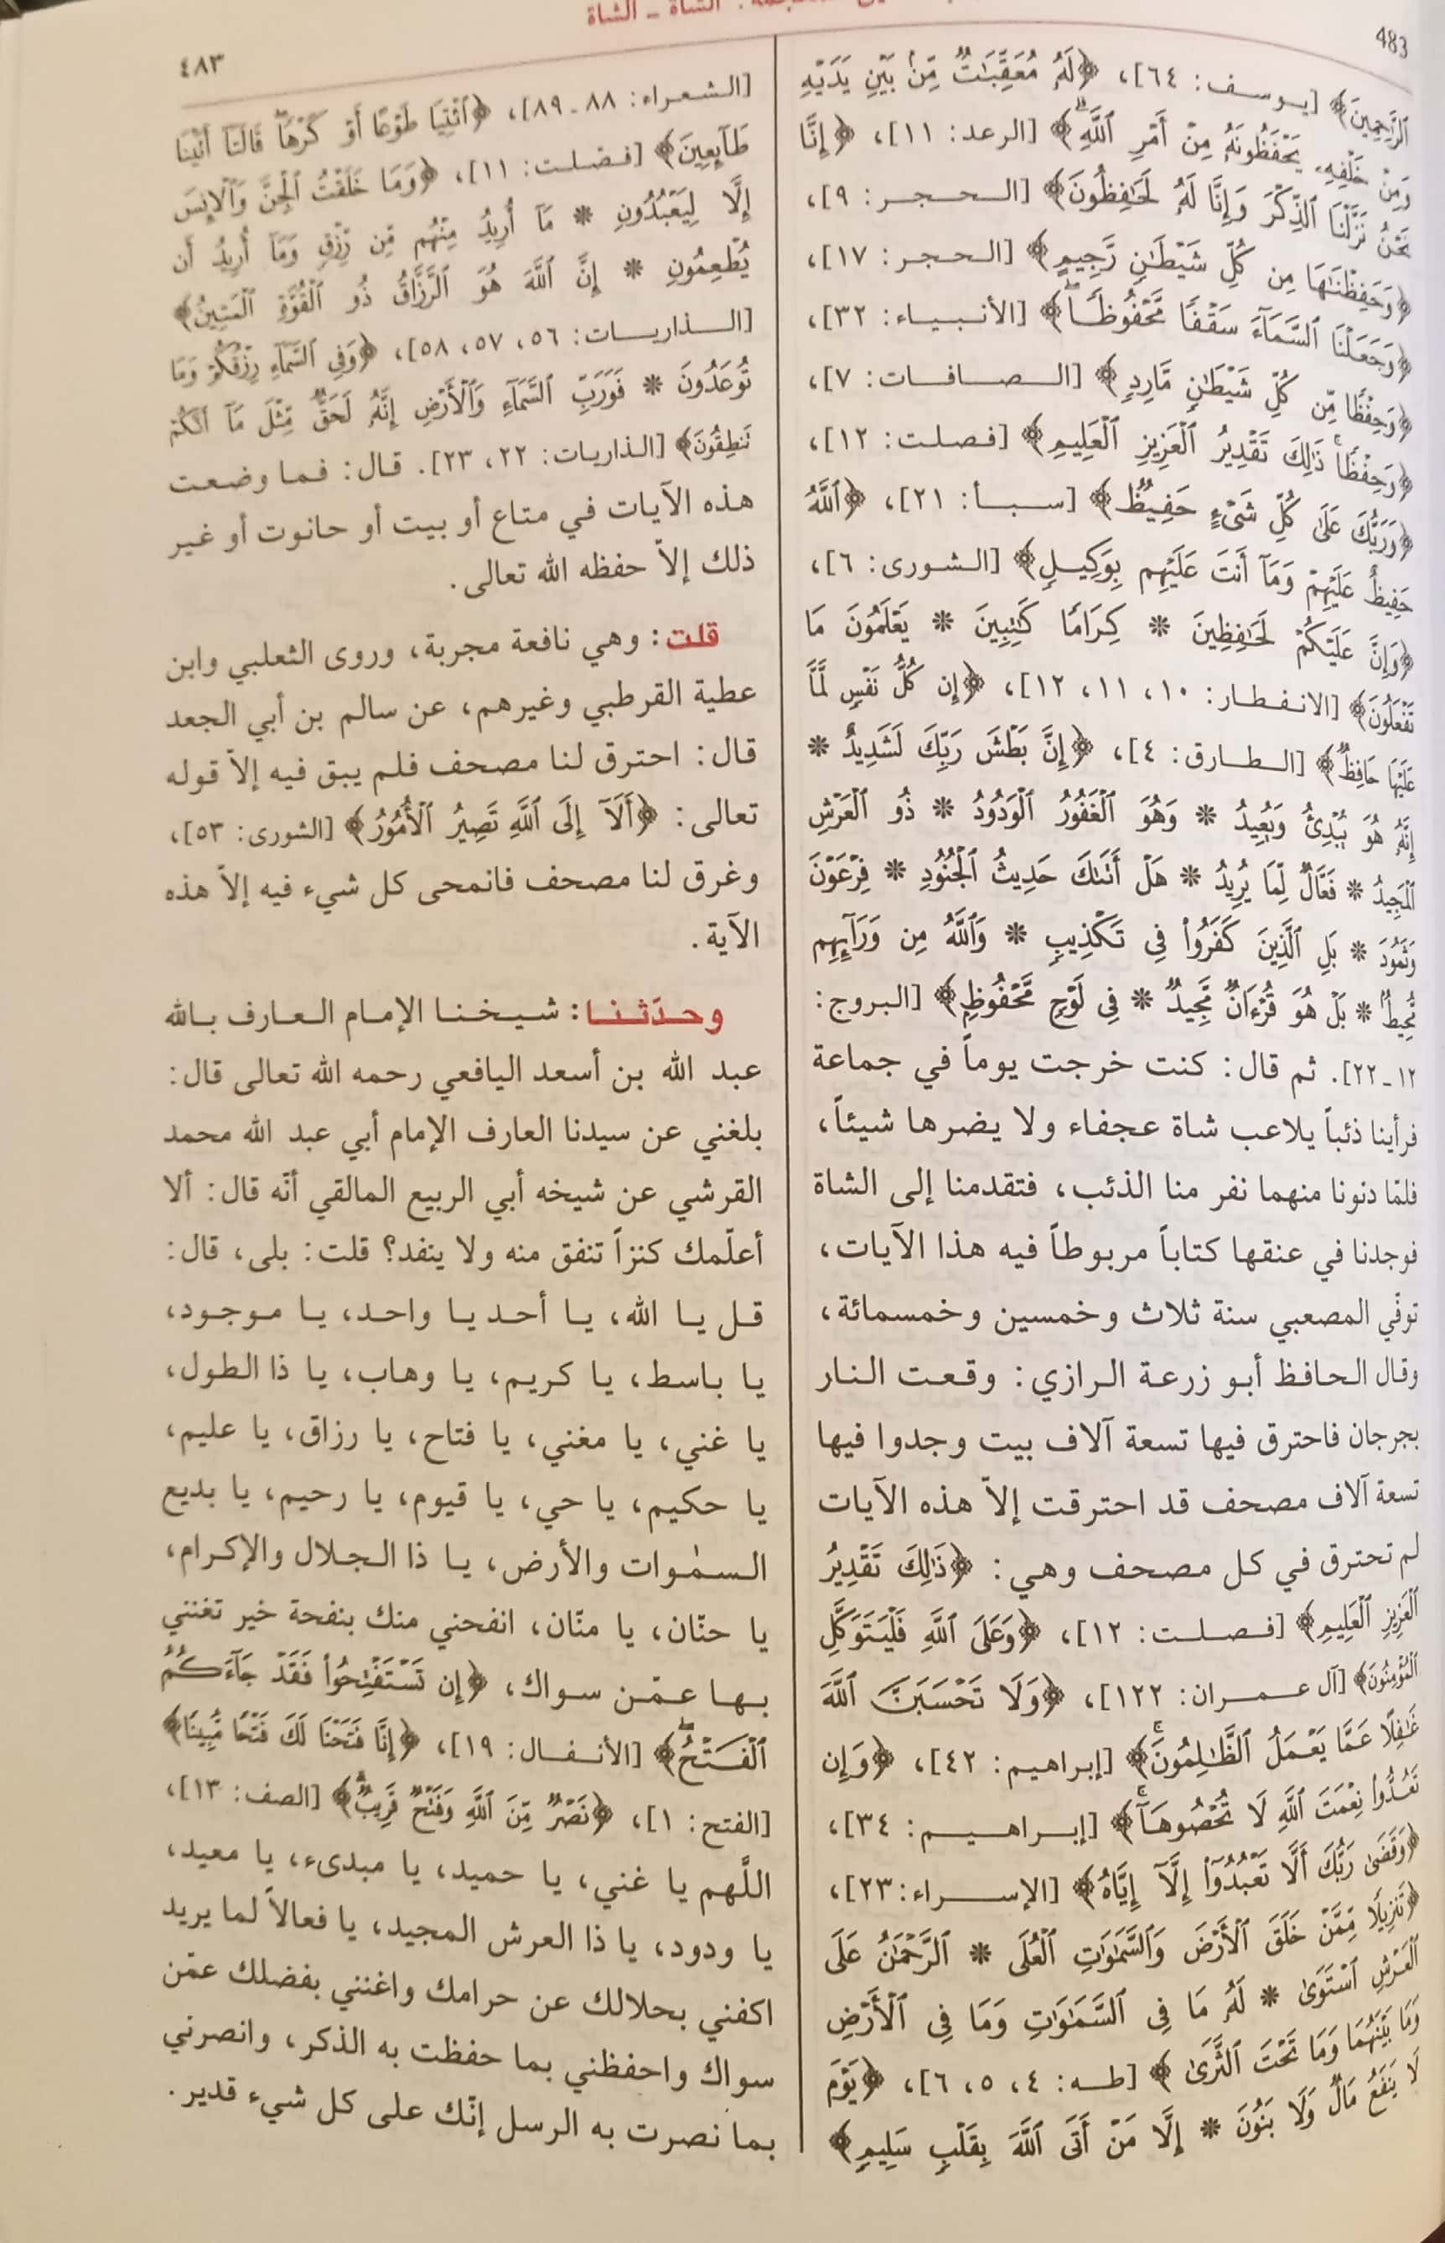 الشاة ـ الشاة
483
٤٨٣
ٱلرَّٰحِمِينَ﴾ [يوسف: ٦٤]، ﴿لَهُۥ مُعَقِّبَٰتٌ مِّنۢ بَيْنِ يَدَيْهِ
وَمِنْ خَلْفِهِۦ يَحْفَظُونَهُۥ مِنْ أَمْرِ ٱللَّهِۗ﴾ [الرعد: ١١]، ﴿إِنَّا
نَحْنُ نَزَّلْنَا ٱلذِّكْرَ وَإِنَّا لَهُۥ لَحَٰفِظُونَ﴾ [الحجر: ٩]،
﴿وَحَفِظْنَٰهَا مِن كُلِّ شَيْطَٰنٍ رَّجِيمٍ﴾ [الحجر: ١٧]،
﴿وَجَعَلْنَا ٱلسَّمَآءَ سَقْفًا مَّحْفُوظًاۖ﴾ [الأنبياء: ٣٢]،
﴿وَحِفْظًا مِّن كُلِّ شَيْطَٰنٍ مَّارِدٍ﴾ [الصافات: ٧]،
﴿وَحِفْظًاۚ ذَٰلِكَ تَقْدِيرُ ٱلْعَزِيزِ ٱلْعَلِيمِ﴾ [فصلت: ١٢]،
﴿وَرَبُّكَ عَلَىٰ كُلِّ شَىْءٍ حَفِيظٌ﴾ [سبأ: ٢١]، ﴿ٱللَّهُ
حَفِيظٌ عَلَيْهِمْ وَمَآ أَنتَ عَلَيْهِم بِوَكِيلٍ﴾ [الشورى: ٦]،
﴿وَإِنَّ عَلَيْكُمْ لَحَٰفِظِينَ * كِرَامًا كَٰتِبِينَ * يَعْلَمُونَ مَا
تَفْعَلُونَ﴾ [الانفطار: ١٠، ١١، ١٢]، ﴿إِن كُلُّ نَفْسٍ لَّمَّا
عَلَيْهَا حَافِظٌ﴾ [الطارق: ٤]، ﴿إِنَّ بَطْشَ رَبِّكَ لَشَدِيدٌ *
إِنَّهُۥ هُوَ يُبْدِئُ وَيُعِيدُ * وَهُوَ ٱلْغَفُورُ ٱلْوَدُودُ * ذُو ٱلْعَرْشِ
ٱلْمَجِيدُ * فَعَّالٌ لِّمَا يُرِيدُ * هَلْ أَتَىٰكَ حَدِيثُ ٱلْجُنُودِ * فِرْعَوْنَ
وَثَمُودَ * بَلِ ٱلَّذِينَ كَفَرُوا۟ فِى تَكْذِيبٍ * وَٱللَّهُ مِن وَرَآئِهِم
مُّحِيطٌۢ * بَلْ هُوَ قُرْءَانٌ مَّجِيدٌ * فِى لَوْحٍ مَّحْفُوظٍۭ﴾ [البروج:
١٢ـ٢٢]. ثم قال: كنت خرجت يوماً في جماعة
فرأينا ذئباً يلاعب شاة عجفاء ولا يضرها شيئاً،
فلمّا دنونا منهما نفر منا الذئب، فتقدمنا إلى الشاة
فوجدنا في عنقها كتاباً مربوطاً فيه هذا الآيات،
توفّي المصعبي سنة ثلاث وخمسين وخمسمائة،
وقال الحافظ أبو زرعة الرازي: وقعت النار
بجرجان فاحترق فيها تسعة آلاف بيت وجدوا فيها
تسعة آلاف مصحف قد احترقت إلاّ هذه الآيات
لم تحترق في كل مصحف وهي: ﴿ذَٰلِكَ تَقْدِيرُ
ٱلْعَزِيزِ ٱلْعَلِيمِ﴾ [فصلت: ١٢]، ﴿وَعَلَى ٱللَّهِ فَلْيَتَوَكَّلِ
ٱلْمُؤْمِنُونَ﴾ [آل عمران: ١٢٢]، ﴿وَلَا تَحْسَبَنَّ ٱللَّهَ
غَٰفِلًا عَمَّا يَعْمَلُ ٱلظَّٰلِمُونَۚ﴾ [إبراهيم: ٤٢]، ﴿وَإِن
تَعُدُّوا۟ نِعْمَتَ ٱللَّهِ لَا تُحْصُوهَآۗ﴾ [إبراهيم: ٣٤]،
﴿وَقَضَىٰ رَبُّكَ أَلَّا تَعْبُدُوٓا۟ إِلَّآ إِيَّاهُ﴾ [الإسراء: ٢٣]،
﴿تَنزِيلًا مِّمَّنْ خَلَقَ ٱلْأَرْضَ وَٱلسَّمَٰوَٰتِ ٱلْعُلَى * ٱلرَّحْمَٰنُ عَلَى
ٱلْعَرْشِ ٱسْتَوَىٰ * لَهُۥ مَا فِى ٱلسَّمَٰوَٰتِ وَمَا فِى ٱلْأَرْضِ
وَمَا بَيْنَهُمَا وَمَا تَحْتَ ٱلثَّرَىٰ﴾ [طه: ٤، ٥، ٦]، ﴿يَوْمَ
لَا يَنفَعُ مَالٌ وَلَا بَنُونَ * إِلَّا مَنْ أَتَى ٱللَّهَ بِقَلْبٍ سَلِيمٍ﴾
[الشعراء: ٨٨ـ٨٩]، ﴿ٱئْتِيَا طَوْعًا أَوْ كَرْهًا قَالَتَآ أَتَيْنَا
طَآئِعِينَ﴾ [فصلت: ١١]، ﴿وَمَا خَلَقْتُ ٱلْجِنَّ وَٱلْإِنسَ
إِلَّا لِيَعْبُدُونِ * مَآ أُرِيدُ مِنْهُم مِّن رِّزْقٍ وَمَآ أُرِيدُ أَن
يُطْعِمُونِ * إِنَّ ٱللَّهَ هُوَ ٱلرَّزَّاقُ ذُو ٱلْقُوَّةِ ٱلْمَتِينُ﴾
[الذاريات: ٥٦، ٥٧، ٥٨]، ﴿وَفِى ٱلسَّمَآءِ رِزْقُكُمْ وَمَا
تُوعَدُونَ * فَوَرَبِّ ٱلسَّمَآءِ وَٱلْأَرْضِ إِنَّهُۥ لَحَقٌّ مِّثْلَ مَآ أَنَّكُمْ
تَنطِقُونَ﴾ [الذاريات: ٢٢، ٢٣]. قال: فما وضعت
هذه الآيات في متاع أو بيت أو حانوت أو غير
ذلك إلاّ حفظه الله تعالى.
قلت: وهي نافعة مجربة، وروى الثعلبي وابن
عطية القرطبي وغيرهم، عن سالم بن أبي الجعد
قال: احترق لنا مصحف فلم يبق فيه إلاّ قوله
تعالى: ﴿أَلَآ إِلَى ٱللَّهِ تَصِيرُ ٱلْأُمُورُ﴾ [الشورى: ٥٣]،
وغرق لنا مصحف فانمحى كل شيء فيه إلاّ هذه
الآية.
وحدّثنا: شيخنا الإمام العارف بالله
عبد الله بن أسعد اليافعي رحمه الله تعالى قال:
بلغني عن سيدنا العارف الإمام أبي عبد الله محمد
القرشي عن شيخه أبي الربيع المالقي أنّه قال: ألا
أعلّمك كنزاً تنفق منه ولا ينفد؟ قلت: بلى، قال:
قل يا الله، يا أحد يا واحد، يا موجود،
يا باسط، يا كريم، يا وهاب، يا ذا الطول،
يا غني، يا مغني، يا فتاح، يا رزاق، يا عليم،
يا حكيم، يا حي، يا قيوم، يا رحيم، يا بديع
السمٰوات والأرض، يا ذا الجلال والإكرام،
يا حنّان، يا منّان، انفحني منك بنفحة خير تغنني
بها عمّن سواك، ﴿إِن تَسْتَفْتِحُوا۟ فَقَدْ جَآءَكُمُ
ٱلْفَتْحُۖ﴾ [الأنفال: ١٩]، ﴿إِنَّا فَتَحْنَا لَكَ فَتْحًا مُّبِينًا﴾
[الفتح: ١]، ﴿نَصْرٌ مِّنَ ٱللَّهِ وَفَتْحٌ قَرِيبٌۗ﴾ [الصف: ١٣]،
اللَّهم يا غني، يا حميد، يا مبدىء، يا معيد،
يا ودود، يا ذا العرش المجيد، يا فعالاً لما يريد
اكفني بحلالك عن حرامك واغنني بفضلك عمّن
سواك واحفظني بما حفظت به الذكر، وانصرني
بما نصرت به الرسل إنّك على كل شيء قدير.